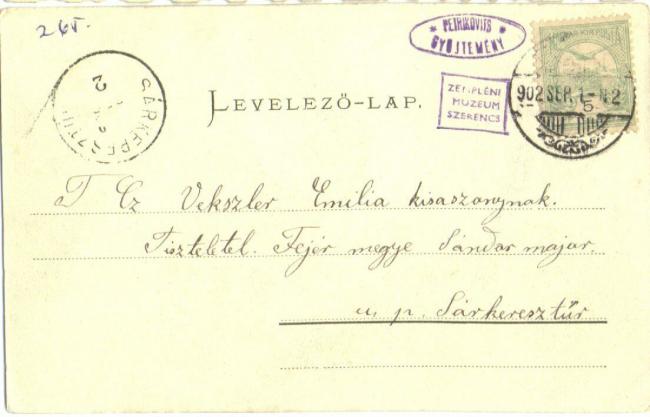 PETRIKOVITS
GYŰJTEMÉNY
ZEMPLÉNI
MUZEUM
SZERENCS
902 SEP. 1
SÁRKERESZTÚR
LEVELEZŐ-LAP.
T Cz Vekszler Emilia kisaszonynak.
Tiszteletel. Fejér megye Sándor major.
u. p. Sárkeresztúr